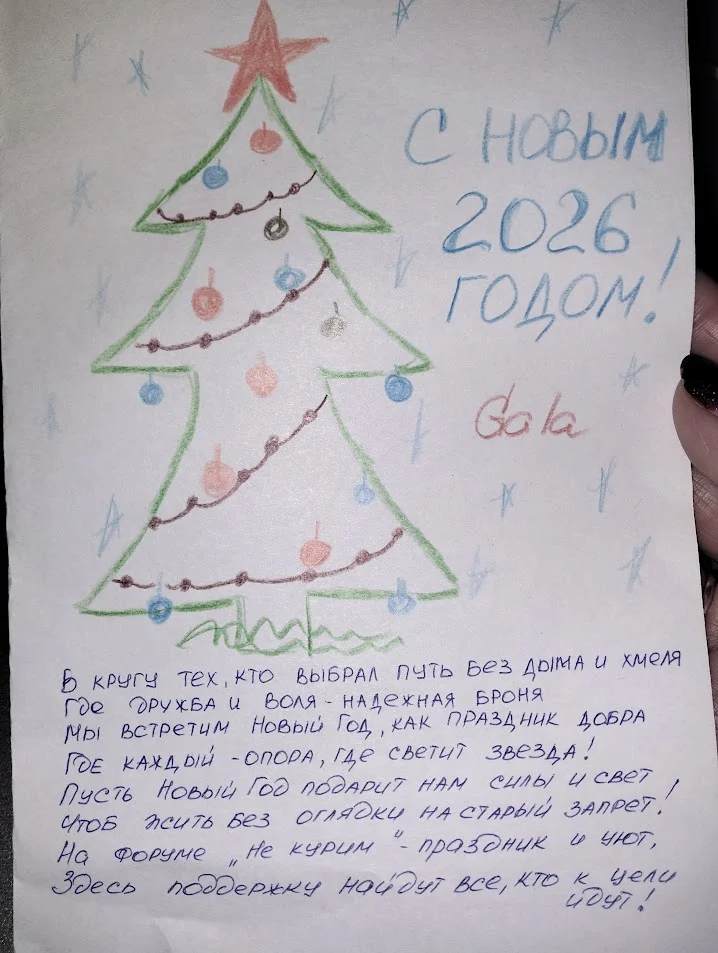 С НОВЫМ
2026
ГОДОМ!
Gala
В КРУГУ ТЕХ, КТО ВЫБРАЛ ПУТЬ БЕЗ ДЫМА И ХМЕЛЯ
ГДЕ ДРУЖБА И ВОЛЯ - НАДЕЖНАЯ БРОНЯ
МЫ ВСТРЕТИМ НОВЫЙ ГОД, КАК ПРАЗДНИК ДОБРА
ГДЕ КАЖДЫЙ - ОПОРА, ГДЕ СВЕТИТ ЗВЕЗДА!
ПУСТЬ НОВЫЙ ГОД ПОДАРИТ НАМ СИЛЫ И СВЕТ
ЧТОБ ЖИТЬ БЕЗ ОГЛЯДКИ НА СТАРЫЙ ЗАПРЕТ!
НА ФОРУМЕ „НЕ КУРИМ" - ПРАЗДНИК И УЮТ,
ЗДЕСЬ ПОДДЕРЖКУ НАЙДУТ ВСЕ, КТО К ЦЕЛИ
ИДУТ!